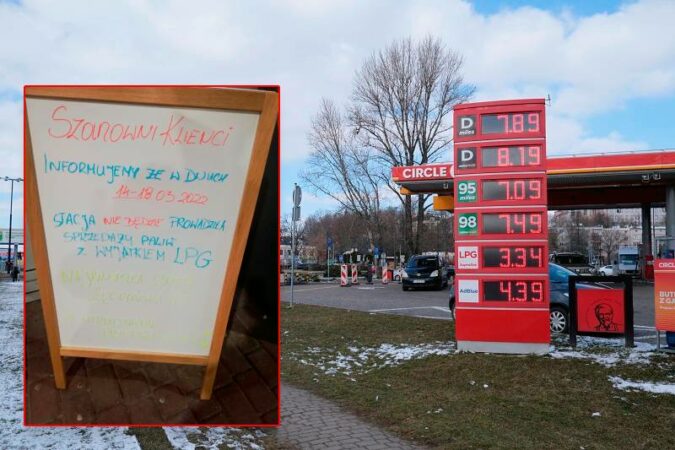 SZANOWNI KLIENCI
INFORMUJEMY ŻE W DNIACH
14-18 03 2022
STACJA NIE BĘDZIE PROWADZIŁA
SPRZEDAŻY PALIW
Z WYJĄTKIEM LPG
CIRCLE
D miles 7.89
D 8.19
95 miles 7.09
98 7.49
LPG 3.34
AdBlue 4.39
CIRCLE